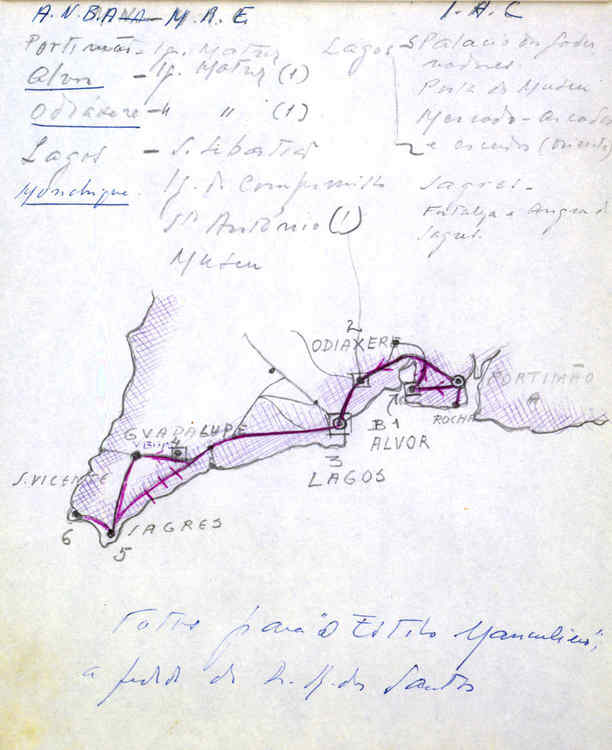 A.N.B.A - M.R.E
I.A.C
Portimão - Ig. Matriz
Alvor - Ig. Matriz (1)
Odiaxere - " " (1)
Lagos - S. Sebastião
Monchique. Ig. do
Stº António (1)
Museu
Lagos
Palacio dos Gover
nadores
Porta do Museu
Mercado - Arcadas
e
Sagres -
Fortaleza e Angra de
Sagres.
2
ODIAXERE
PORTIMÃO
A
1
ROCHA
B1
ALVOR
GUADALUPE
4
3
LAGOS
S. VICENTE
6
SAGRES
5
Fotos para "O Estilo Manuelino",
a pedido de R. dos Santos